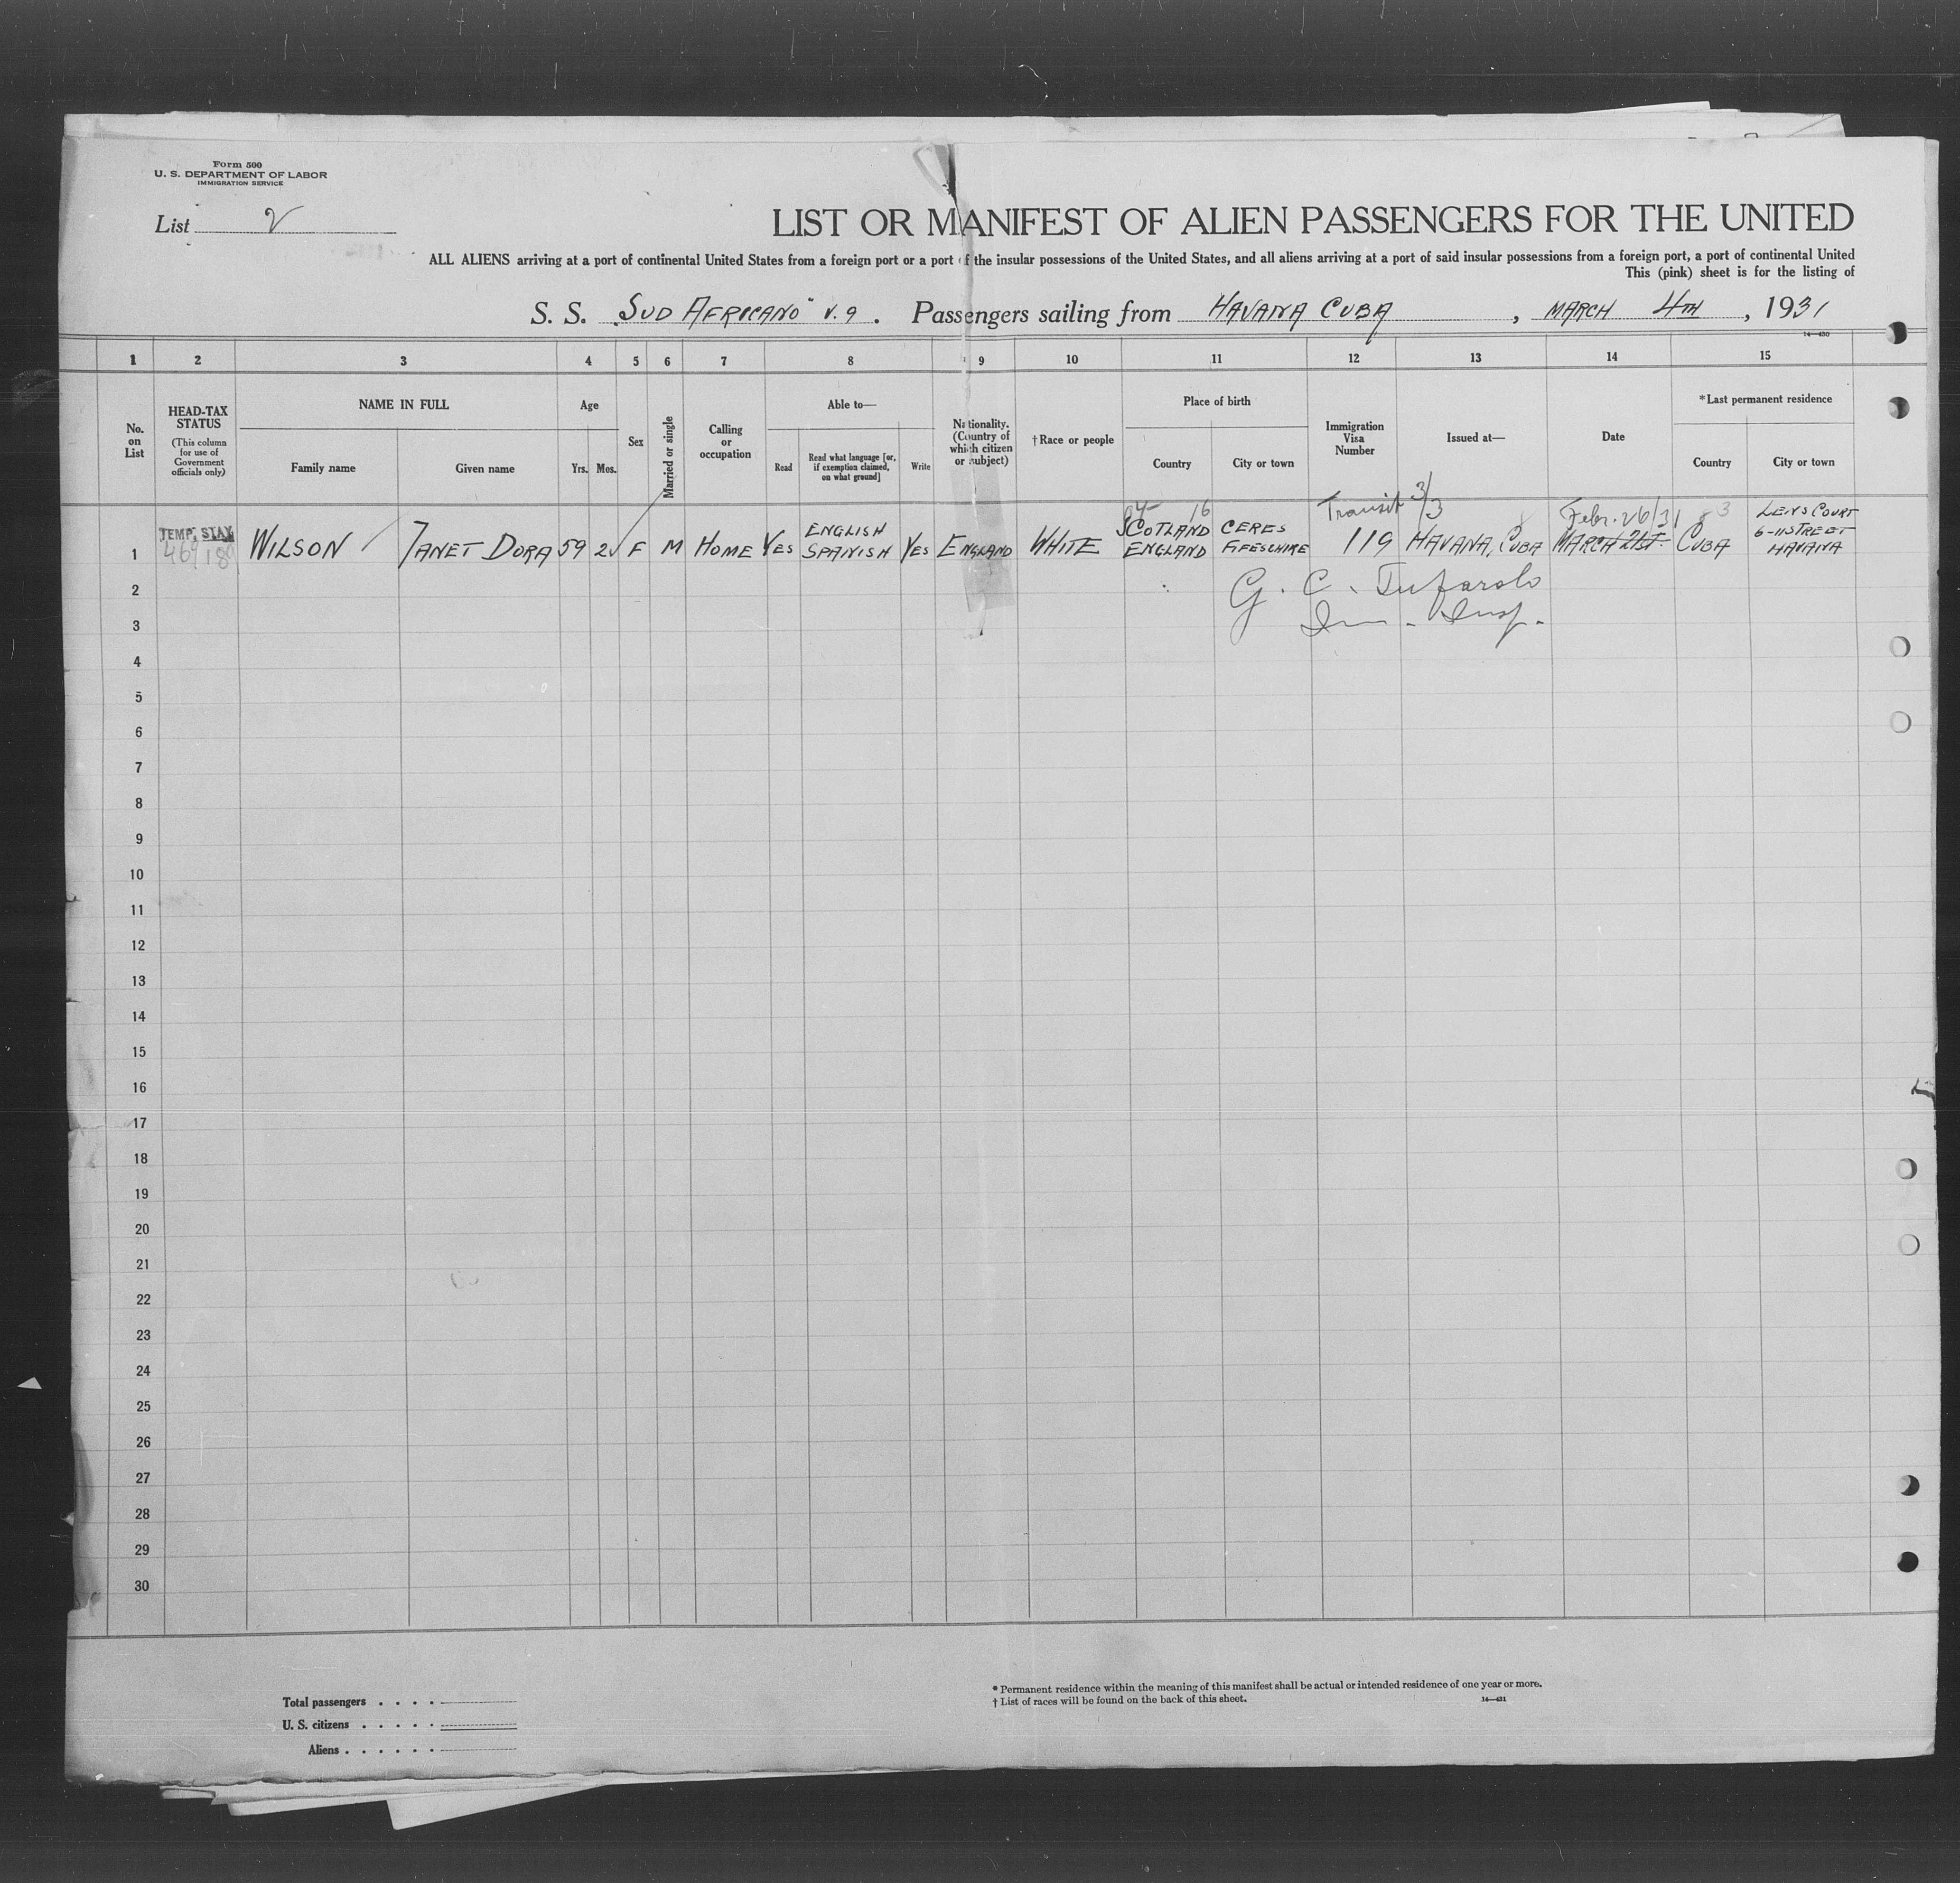 Form 500
U. S. DEPARTMENT OF LABOR
IMMIGRATION SERVICE
List 2
LIST OR MANIFEST OF ALIEN PASSENGERS FOR THE UNITED
ALL ALIENS arriving at a port of continental United States from a foreign port or a port of the insular possessions of the United States, and all aliens arriving at a port of said insular possessions from a foreign port, a port of continental United
This (pink) sheet is for the listing of
S. S. "SUD AFRICANO" V. 9. Passengers sailing from HAVANA CUBA, MARCH 4TH, 1931
14—430
1 2 3 4 5 6 7 8 9 10 11 12 13 14 15
No. on List
HEAD-TAX STATUS (This column for use of Government officials only)
NAME IN FULL
Family name Given name
Age
Yrs. Mos.
Sex
Married or single
Calling or occupation
Able to—
Read Read what language [or, if exemption claimed, on what ground] Write
Nationality. (Country of which citizen or subject)
†Race or people
Place of birth
Country City or town
Immigration Visa Number
Issued at—
Date
*Last permanent residence
Country City or town
Transit 3/3 Febr. 26/31
1 TEMP. STAY WILSON JANET DORA 59 2 F M HOME YES ENGLISH SPANISH YES ENGLAND WHITE SCOTLAND ENGLAND CERES FIFESHIRE 119 HAVANA, CUBA MARCH 21ST. CUBA COURT 6-11 STREET HAVANA
2 G. C.
3 Im. Insp.
4
5
6
7
8
9
10
11
12
13
14
15
16
17
18
19
20
21
22
23
24
25
26
27
28
29
30
Total passengers . . . .
U. S. citizens . . . . .
Aliens . . . . . .
* Permanent residence within the meaning of this manifest shall be actual or intended residence of one year or more.
† List of races will be found on the back of this sheet.
14—431